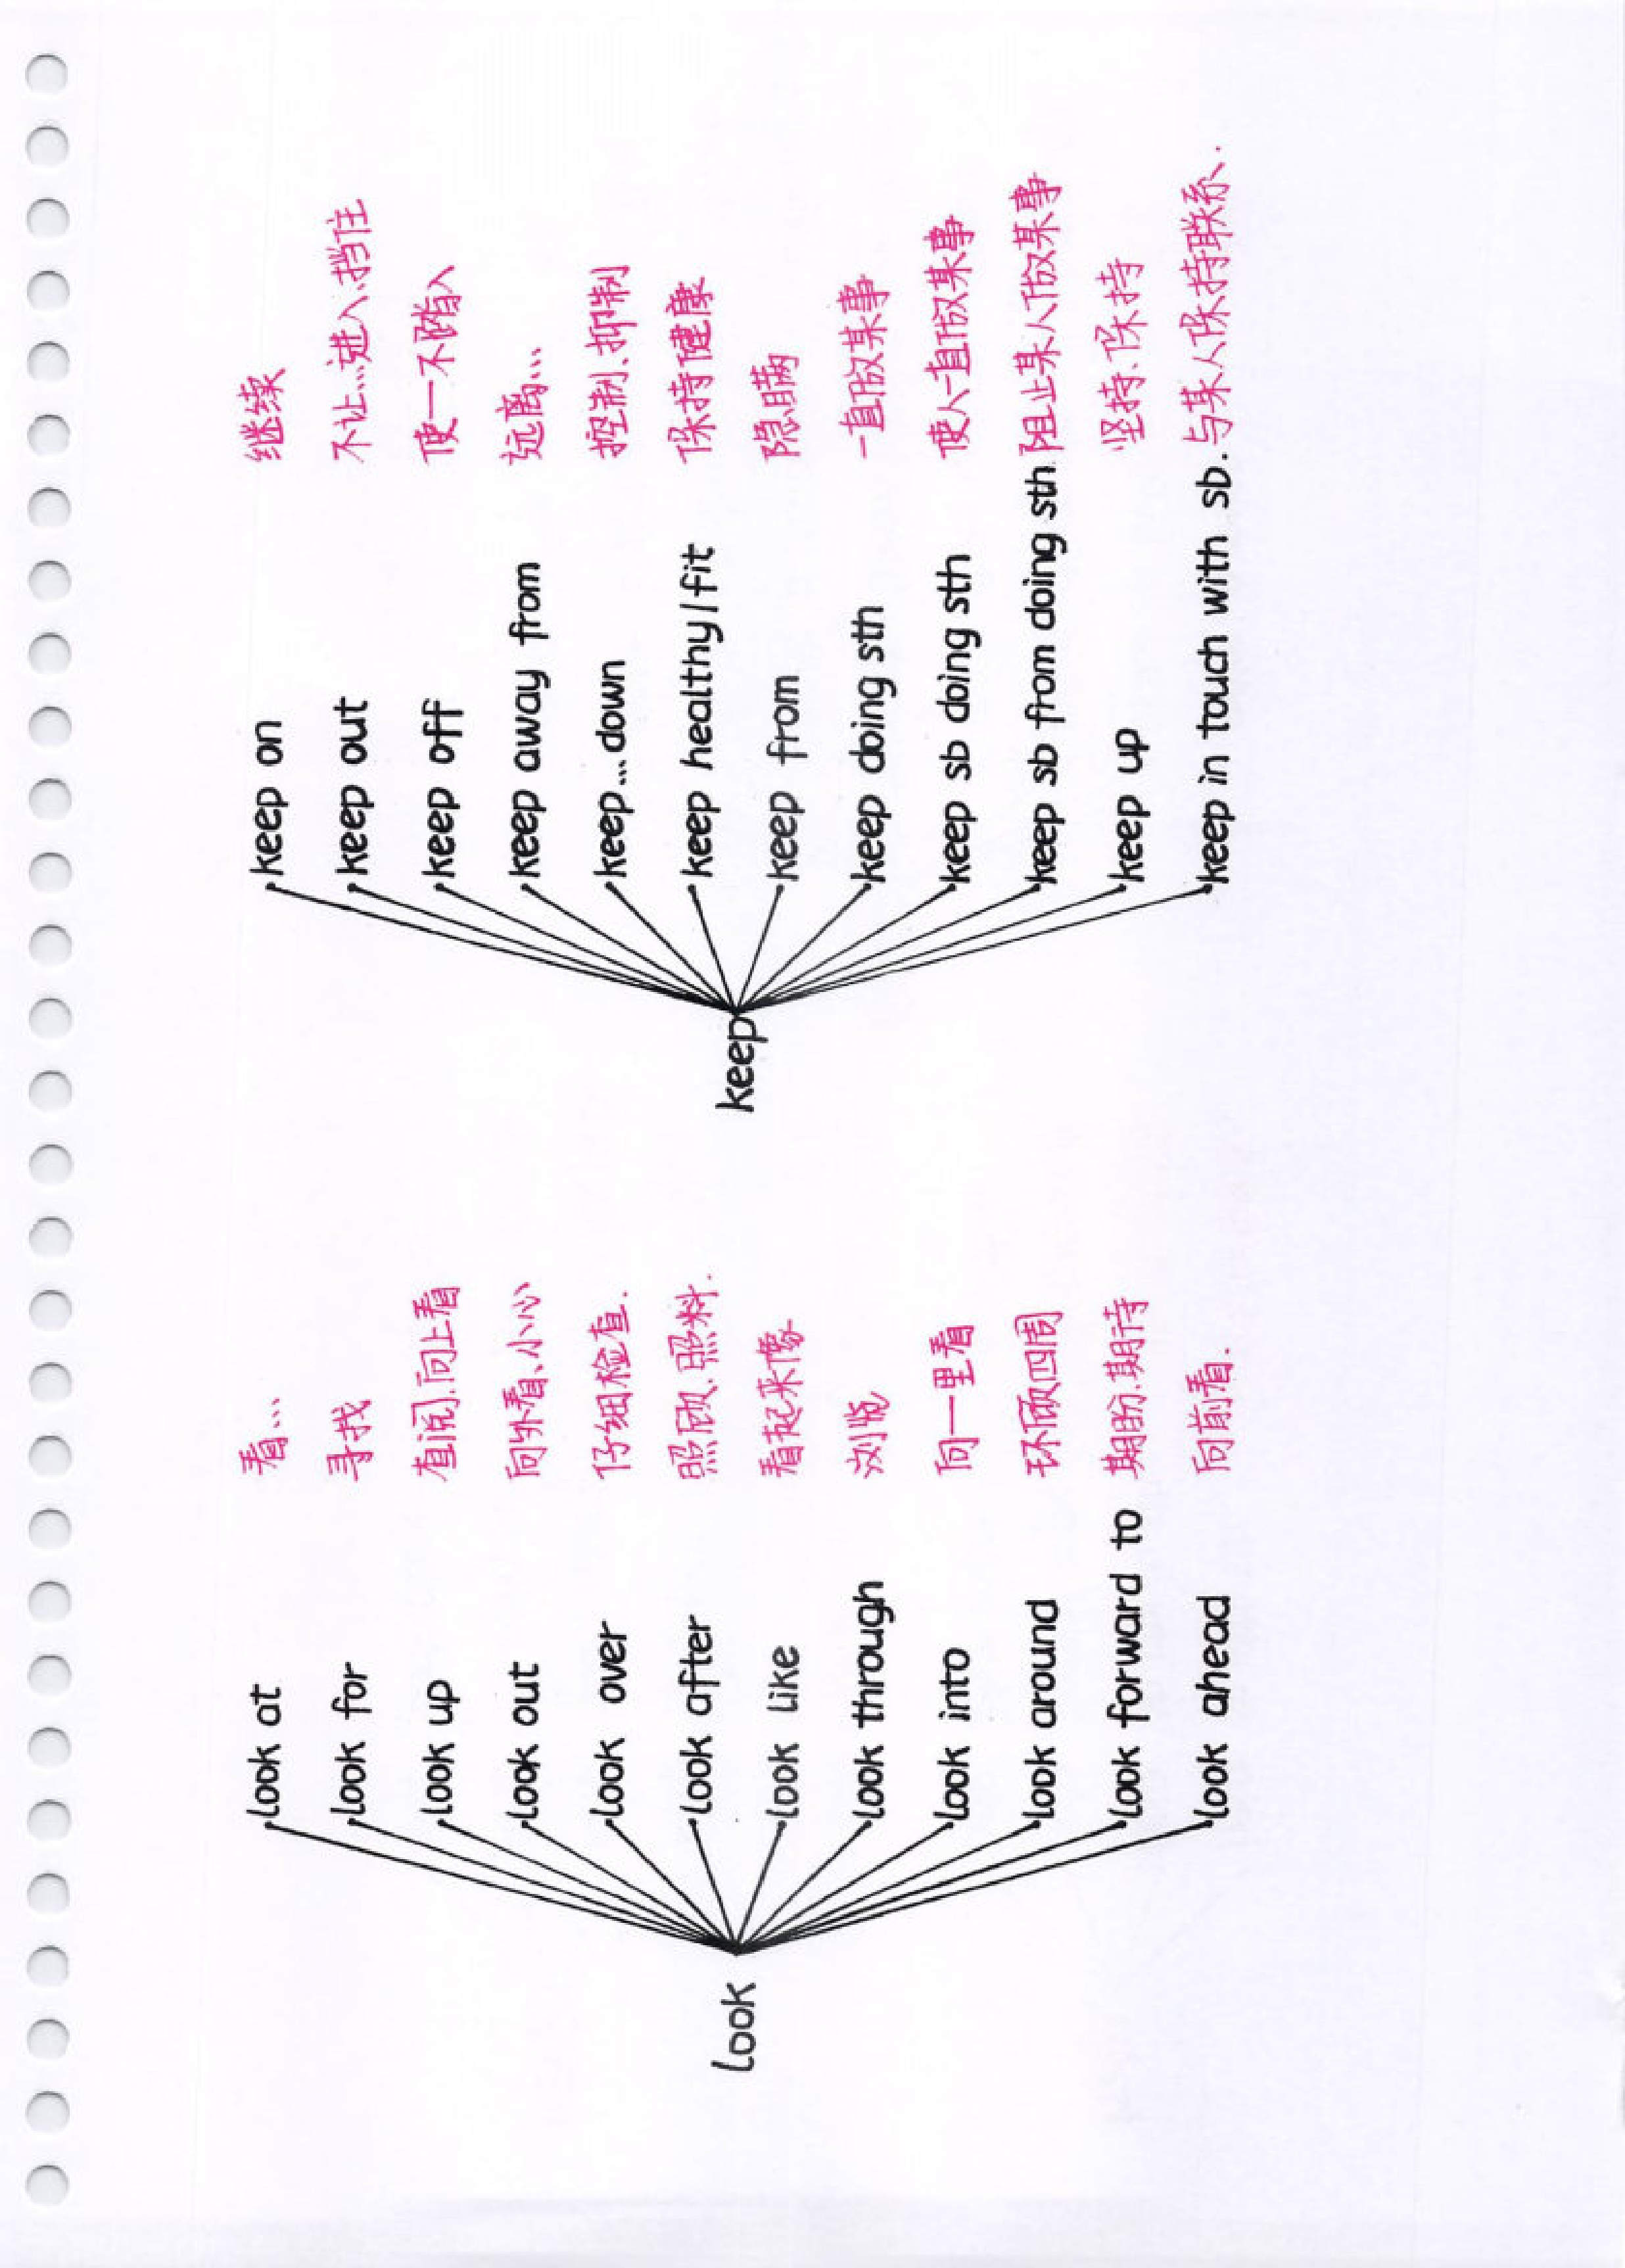 look
look at 看…
look for 寻找
look up 查阅.向上看
look out 向外看、小心
look over 仔细检查.
look after 照顾.照料.
look like 看起来像
look through 浏览
look into 向一里看
look around 环顾四周
look forward to 期盼.期待
look ahead 向前看.
keep
keep on 继续
keep out 不让…进入.挡住
keep off 使一不陷入
keep away from 远离…
keep…down 控制.抑制
keep healthy/fit 保持健康
keep from 隐瞒
keep doing sth 一直做某事
keep sb doing sth 使人一直做某事
keep sb from doing sth 阻止某人做某事
keep up 坚持.保持
keep in touch with sb. 与某人保持联系.